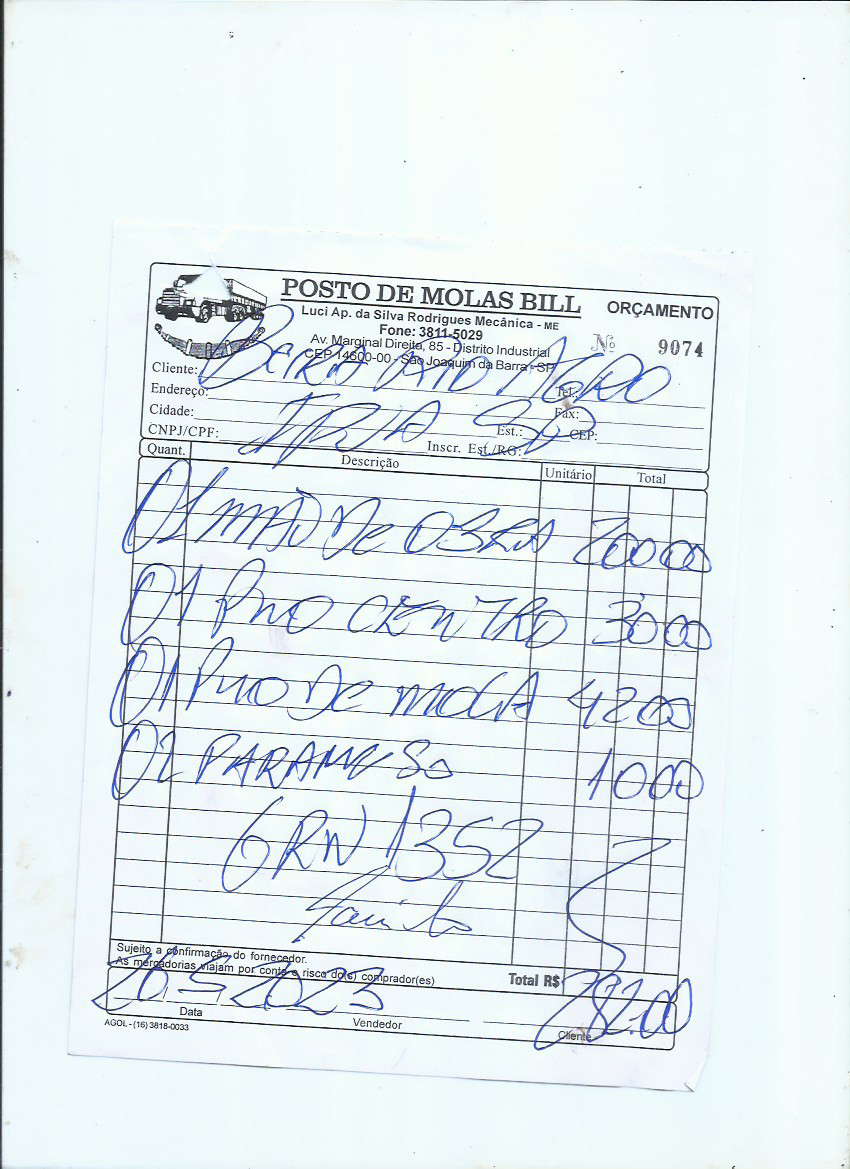 POSTO DE MOLAS BILL
ORÇAMENTO
Luci Ap. da Silva Rodrigues Mecânica - ME
Fone: 3811-5029
Av. Marginal Direita, 85 - Distrito Industrial
CEP 14600-00 - São Joaquim da Barra - SP
Nº 9074
Cliente: BEIRA RIO AGRO Tel.:
Endereço: Fax:
Cidade: Est.: SP CEP:
CNPJ/CPF: Inscr. Est./RG:
Quant. Descrição Unitário Total
01 MÃO De OBRA 200 00
01 PINO CENTRO 30 00
01 PINO De MOLA 42 00
02 PARAFUSO 10 00
GRN 1352
Sujeito a confirmação do fornecedor.
As mercadorias viajam por conta e risco do(s) comprador(es)
Total R$ 282.00
26 5 2023
Data Vendedor Cliente
AGOL - (16) 3818-0033